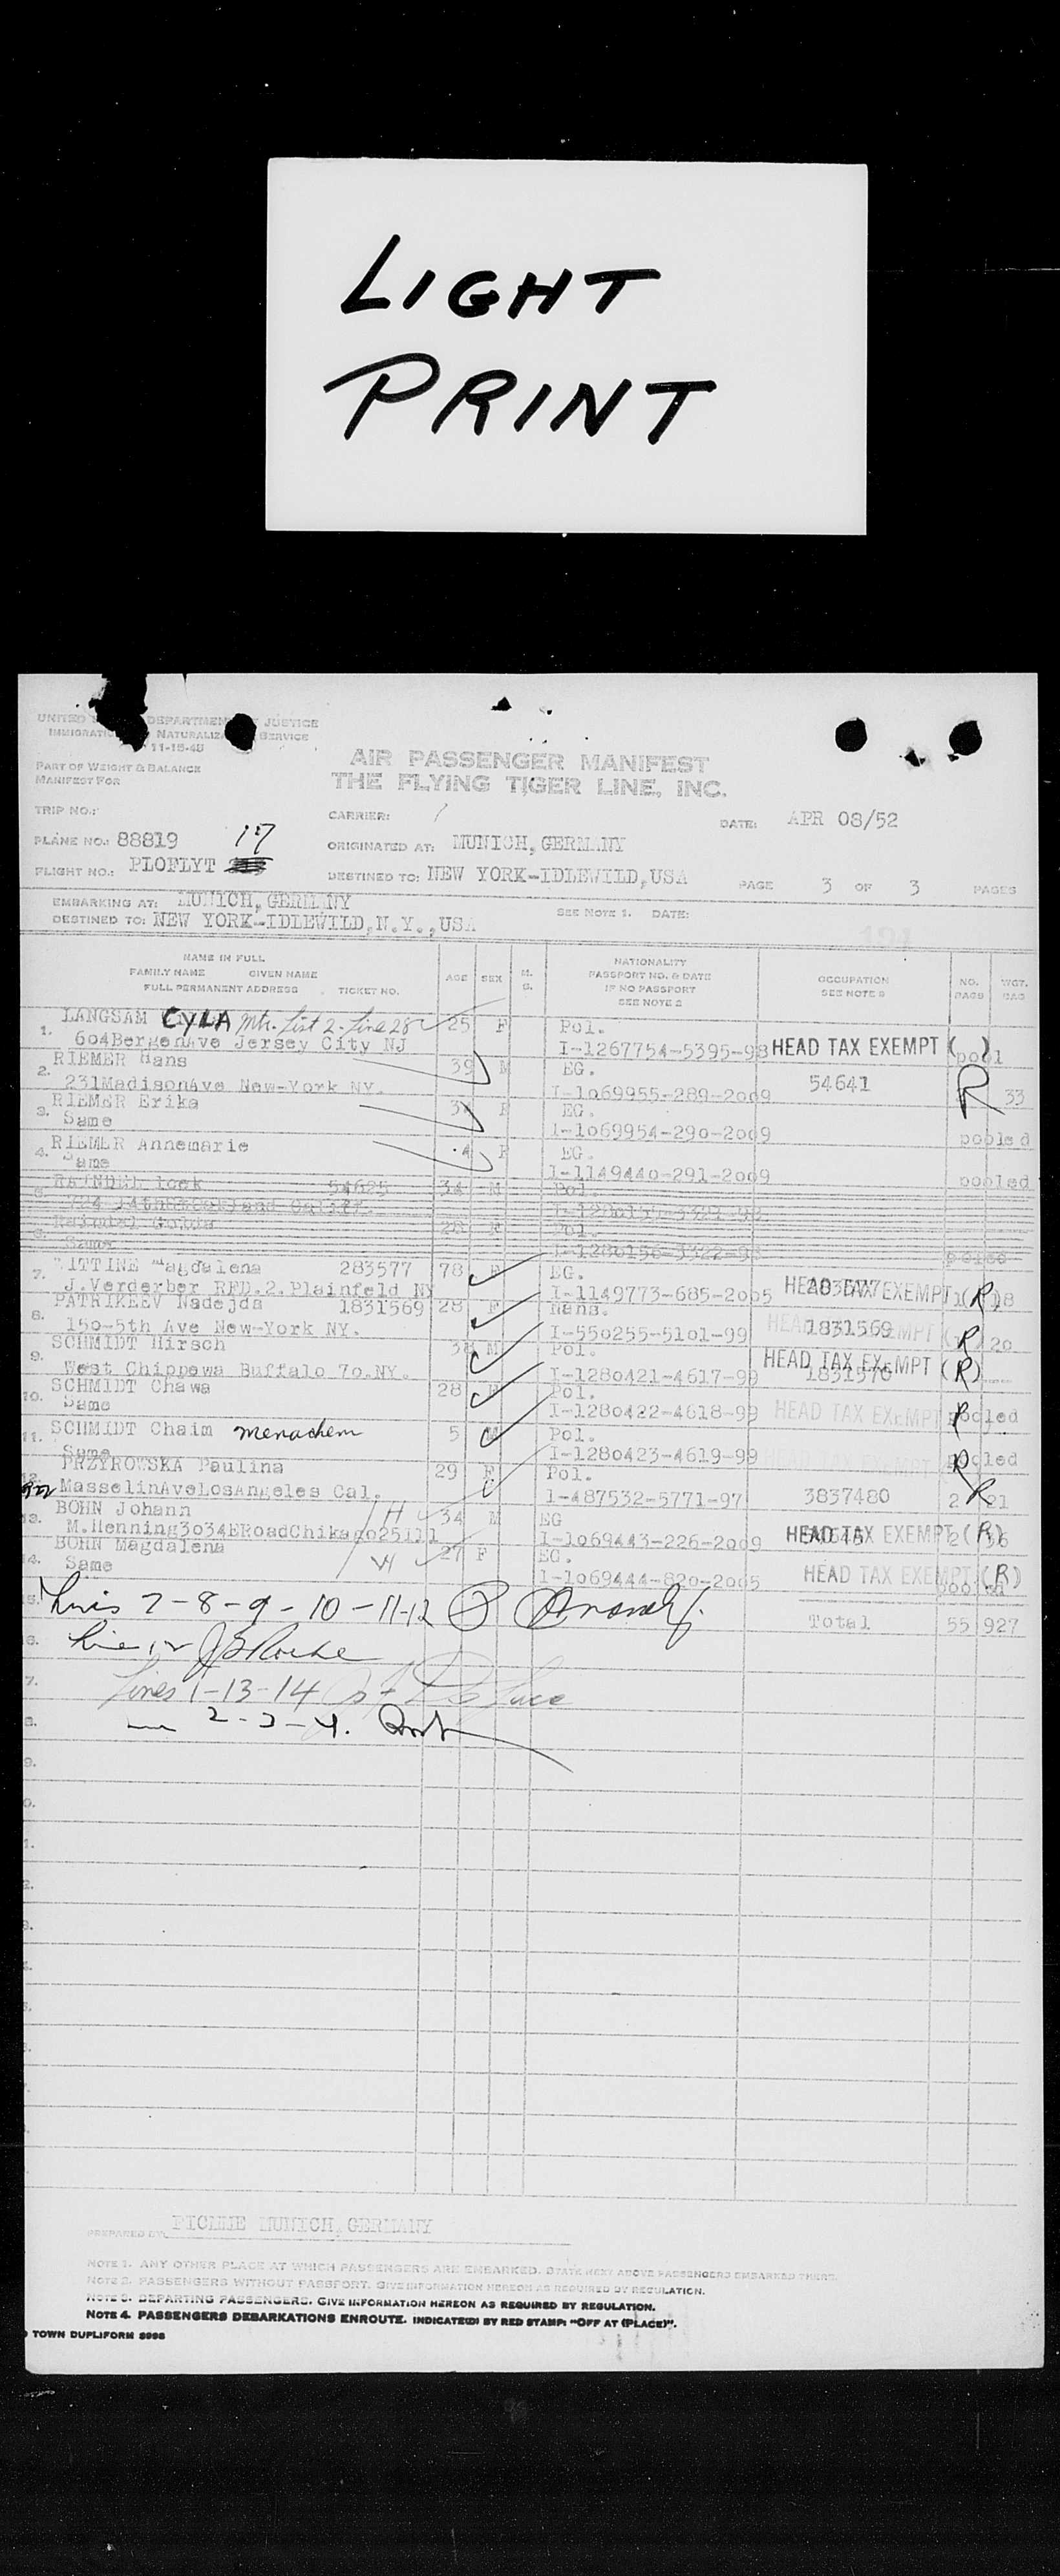 LIGHT
PRINT
UNITED DEPARTMENT JUSTICE
NATURALIZA SERVICE
11-15-48
PART OF WEIGHT & BALANCE
MANIFEST FOR
AIR PASSENGER MANIFEST
THE FLYING TIGER LINE, INC.
TRIP NO.:
CARRIER:
DATE: APR 08/52
PLANE NO.: 88819 17
ORIGINATED AT: MUNICH, GERMANY
FLIGHT NO.: PLOFLYT
DESTINED TO: NEW YORK-IDLEWILD,USA
PAGE 3 OF 3 PAGES
EMBARKING AT: MUNICH, GERMANY
SEE NOTE 1. DATE:
DESTINED TO: NEW YORK-IDLEWILD,N.Y.,USA
NAME IN FULL
FAMILY NAME GIVEN NAME
FULL PERMANENT ADDRESS TICKET NO.
AGE SEX M. S.
NATIONALITY
PASSPORT NO. & DATE
IF NO PASSPORT
SEE NOTE 2
OCCUPATION
SEE NOTE 3
NO. BAGS
WGT. BAG
1. LANGSAM CYLA Mtr. List 2. Line 28 25 F Pol.
604BergenAve Jersey City NJ I-1267754-5395-98 HEAD TAX EXEMPT ( ) pool
2. RIEMER Hans 39 M EG.
231MadisonAve New-York NY. I-1069955-289-2009 54641 R 33
3. RIEMER Erika F EG.
Same I-1069954-290-2009 pooled
4. RIEMER Annemarie 4 F EG.
Same I-1149440-291-2009 pooled
54625 34 M Pol.
28 F Pol.
Same
7. WITTINE Magdalena 283577 78 F EG.
J.Verderber RFD.2.Plainfeld NY I-1149773-685-2005 HEAD TAX EXEMPT (R) 18
8. PATRIKEEV Nadejda 1831569 28 F Nans.
150-5th Ave New-York NY. I-550255-5101-99 1831569 HEAD TAX EXEMPT (R) 20
9. SCHMIDT Hirsch M Pol.
West Chippewa Buffalo 70.NY. I-1280421-4617-99 HEAD TAX EXEMPT (R) 1831570
10. SCHMIDT Chawa 28 F Pol.
Same I-1280422-4618-99 HEAD TAX EXEMPT R pooled
11. SCHMIDT Chaim menachem 5 M Pol.
Same I-1280423-4619-99 R pooled
12. PRZYROWSKA Paulina 29 F Pol.
MasselinAveLosAngeles Cal. I-487532-5771-97 3837480 2 R 21
13. BOHN Johann H 34 M EG
M.Henning3034ERoadChikago25Ill I-1069443-226-2009 HEAD TAX EXEMPT (R) 2 36
14. BOHN Magdalena W 27 F EG.
Same I-1069444-820-2005 HEAD TAX EXEMPT (R) pooled
Lines 7-8-9-10-11-12
Total 55 927
Line 12
Lines 1-13-14
2-3-4.
PREPARED BY: PICMME MUNICH, GERMANY
NOTE 1. ANY OTHER PLACE AT WHICH PASSENGERS ARE EMBARKED. STATE NEXT ABOVE PASSENGERS EMBARKED THERE.
NOTE 2. PASSENGERS WITHOUT PASSPORT. GIVE INFORMATION HEREON AS REQUIRED BY REGULATION.
NOTE 3. DEPARTING PASSENGERS. GIVE INFORMATION HEREON AS REQUIRED BY REGULATION.
NOTE 4. PASSENGERS DEBARKATIONS ENROUTE. INDICATED: BY RED STAMP: "OFF AT (PLACE)".
TOWN DUPLIFORM 8998